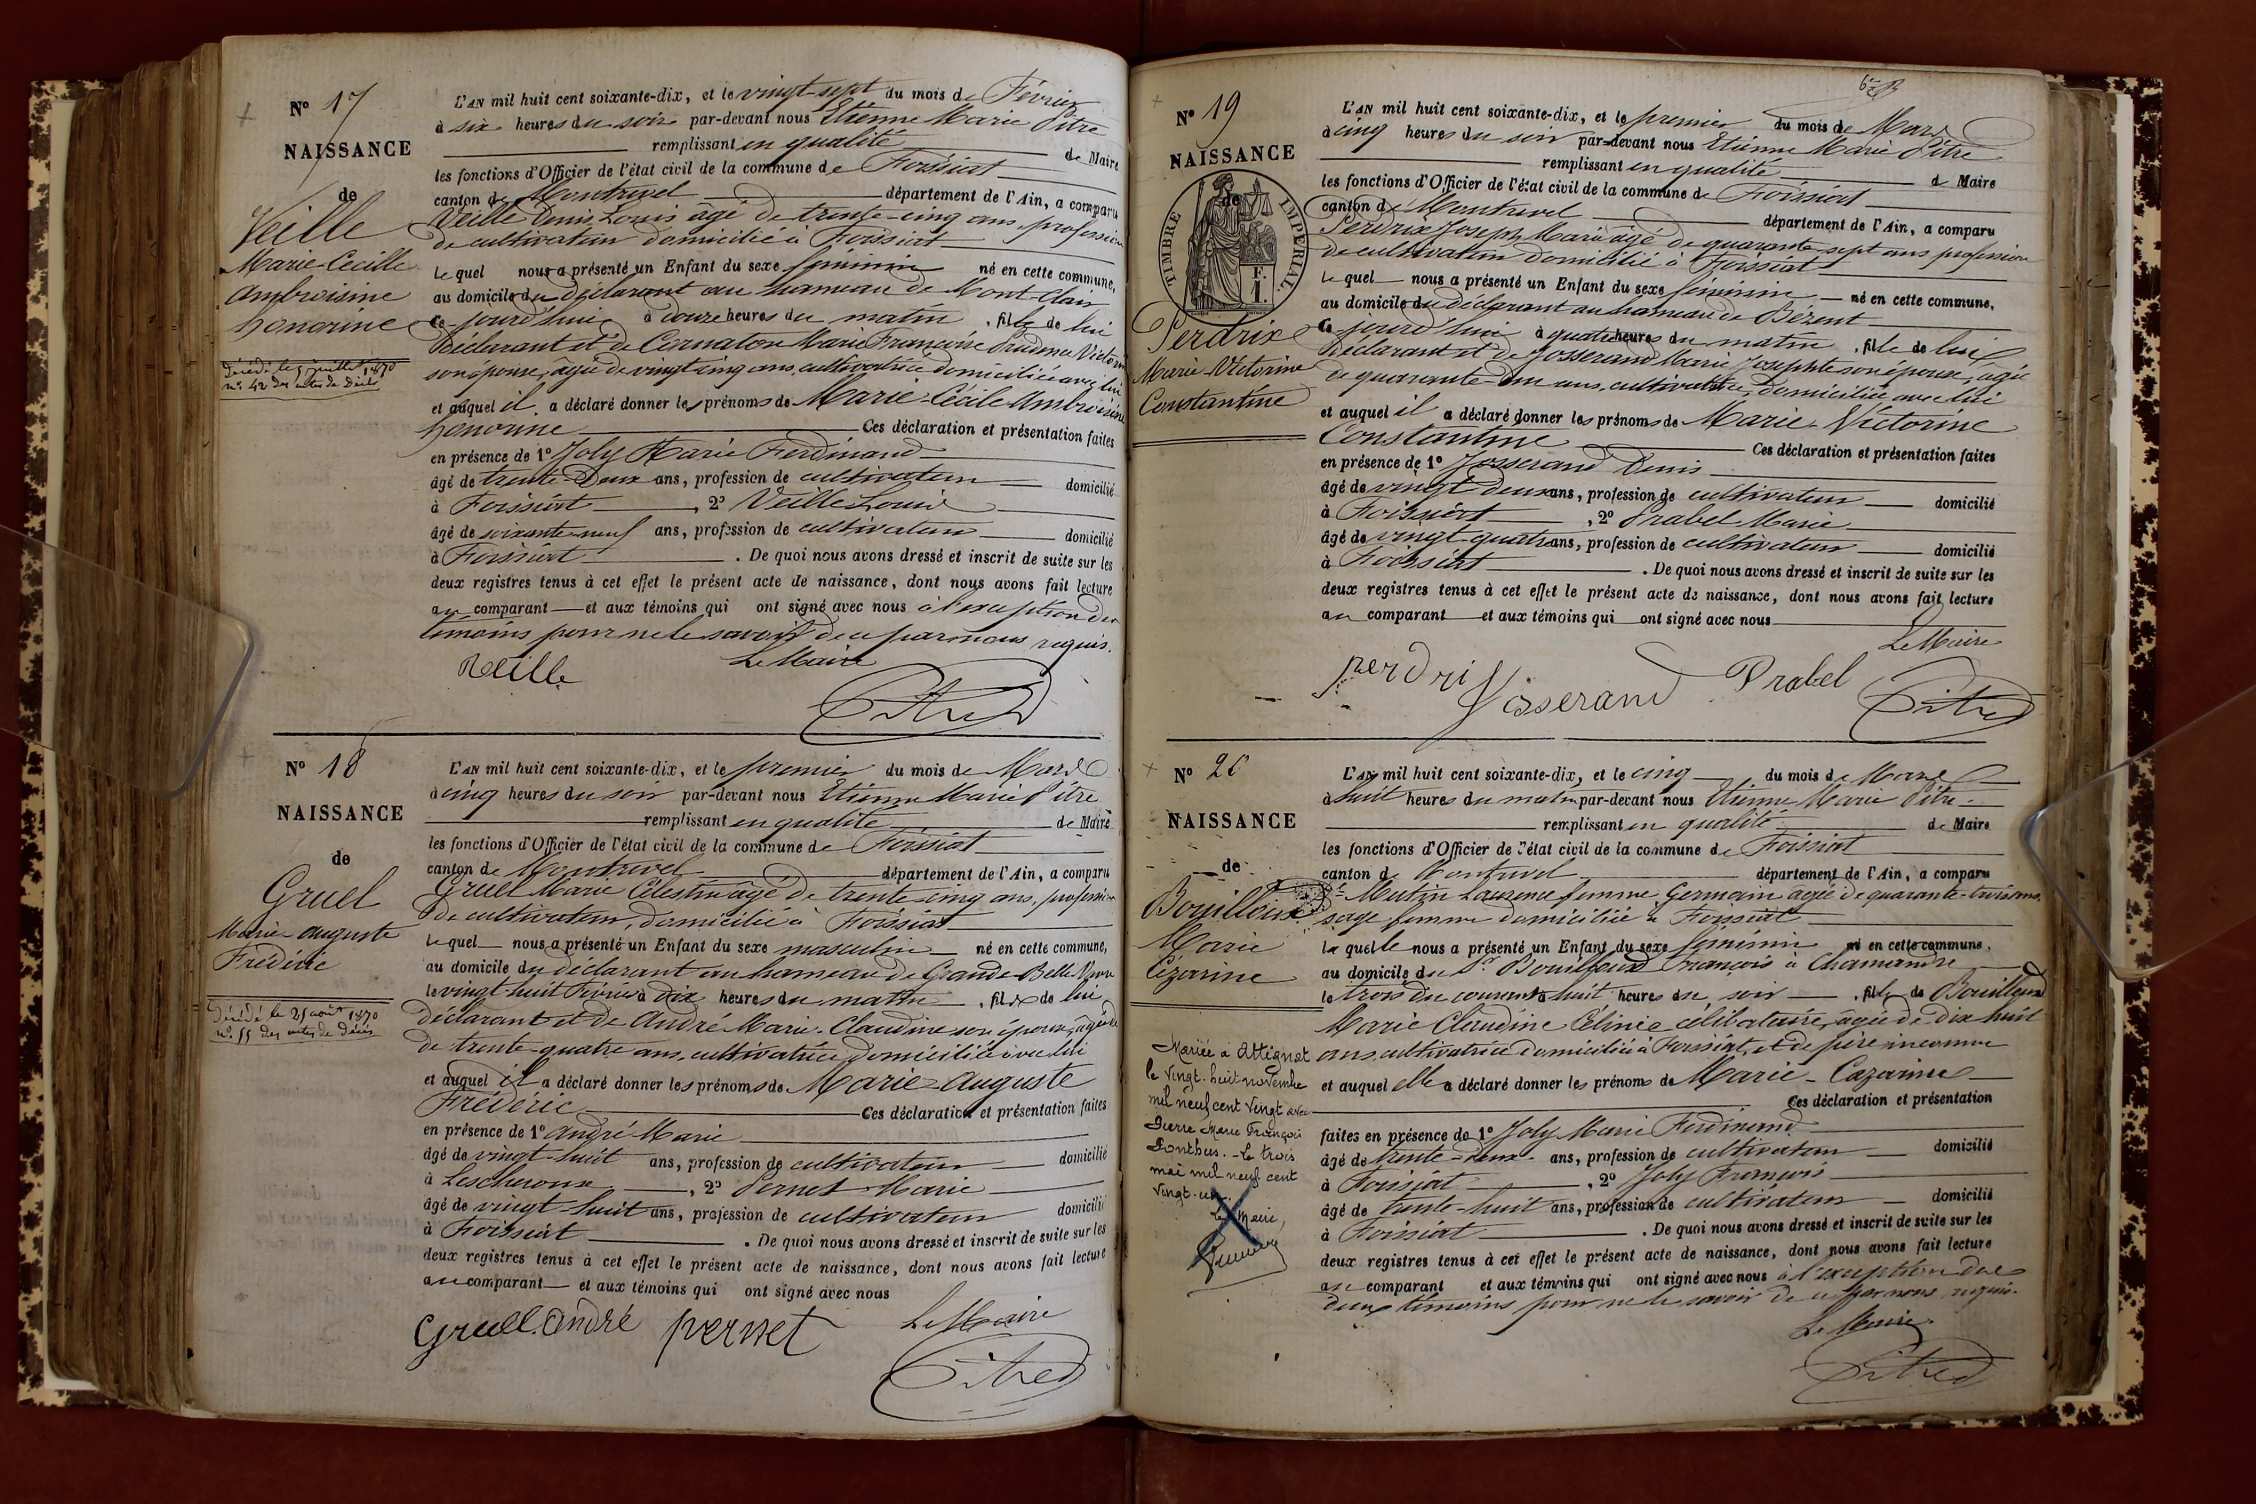 Nº 17
NAISSANCE
de
Veille
Marie Cecille
Ambroisine
honorine
Décédé le 5 juillet 1870
nº 42 des actes de décès
L'AN mil huit cent soixante-dix, et le vingt-sept du mois de Février
à six heures du soir par-devant nous Etienne Marie Pitre
remplissant en qualité de Maire
les fonctions d'Officier de l'état civil de la commune de Foissiat
canton de Montrevel département de l'Ain, a comparu
Veille Denis Louis âgé de trente-cinq ans, profession
de cultivateur domicilié à Foissiat
Le quel nous a présenté un Enfant du sexe féminin né en cette commune,
au domicile du déclarant au hameau de Mont-Clair
Ce jourd'hui à douze heures du matin, fille de lui
déclarant et de Carnaton Marie Françoise Prudence Victorine
son épouse, âgée de vingt cinq ans, cultivatrice domiciliée avec lui
et auquel il a déclaré donner les prénoms de Marie Cécile Ambroisine
honorine Ces déclaration et présentation faites
en présence de 1º Joly Marie Ferdinand
âgé de trente-deux ans, profession de cultivateur domicilié
à Foissiat, 2º Veille Louis
âgé de soixante-neuf ans, profession de cultivateur domicilié
à Foissiat. De quoi nous avons dressé et inscrit de suite sur les
deux registres tenus à cet effet le présent acte de naissance, dont nous avons fait lecture
au comparant et aux témoins qui ont signé avec nous à l'exception des
témoins pour ne le savoir de ce par nous requis.
Veille Le Maire
Pitre
Nº 18
NAISSANCE
de
Gruel
Marie-auguste
Frédéric
Décédé le 25 août 1870
nº 55 des actes de décès
L'AN mil huit cent soixante-dix, et le premier du mois de Mars
à cinq heures du soir par-devant nous Etienne Marie Pitre
remplissant en qualité de Maire
les fonctions d'Officier de l'état civil de la commune de Foissiat
canton de Montrevel département de l'Ain, a comparu
Gruel Marie Célestin âgé de trente cinq ans, profession
de cultivateur, domicilié à Foissiat
Le quel nous a présenté un Enfant du sexe masculin né en cette commune,
au domicile du déclarant au hameau de Grande Belle Vavre
le vingt-huit Février à dix heures du matin, fils de lui
déclarant et de André Marie-Claudine son épouse, âgée
de trente-quatre ans, cultivatrice domiciliée avec lui
et auquel il a déclaré donner les prénoms de Marie-Auguste
Frédéric Ces déclaration et présentation faites
en présence de 1º André Marie
âgé de vingt-huit ans, profession de cultivateur domicilié
à Lescheroux, 2º Pernet Marie
âgé de vingt-huit ans, profession de cultivateur domicilié
à Foissiat. De quoi nous avons dressé et inscrit de suite sur les
deux registres tenus à cet effet le présent acte de naissance, dont nous avons fait lecture
au comparant et aux témoins qui ont signé avec nous
Le Maire
Gruel. André pernet
Pitre
Nº 19
NAISSANCE
de
TIMBRE IMPERIAL
F.
1.
Perdrix
Marie-Victorine
Constantine
L'AN mil huit cent soixante-dix, et le premier du mois de Mars
à cinq heures du soir par-devant nous Etienne Marie Pitre
remplissant en qualité de Maire
les fonctions d'Officier de l'état civil de la commune de Foissiat
canton de Montrevel département de l'Ain, a comparu
Perdrix Joseph Marie âgé de quarante sept ans profession
de cultivateur domicilié à Foissiat
Le quel nous a présenté un Enfant du sexe féminin né en cette commune,
au domicile du déclarant au hameau de Bézent
Ce jourd'hui à quatre heures du matin, fille de lui
déclarant et de Josserand Marie Josephte son épouse, âgée
de quarante-un ans, cultivatrice, domiciliée avec lui
et auquel il a déclaré donner les prénoms de Marie Victorine
Constantine Ces déclaration et présentation faites
en présence de 1º Josserand Denis
âgé de vingt deux ans, profession de cultivateur domicilié
à Foissiat, 2º Prabel Marie
âgé de vingt-quatre ans, profession de cultivateur domicilié
à Foissiat. De quoi nous avons dressé et inscrit de suite sur les
deux registres tenus à cet effet le présent acte de naissance, dont nous avons fait lecture
au comparant et aux témoins qui ont signé avec nous
Le Maire
perdri Josserand Prabel Pitre
Nº 20
NAISSANCE
de
Bouilloux
Marie
Cézarine
Mariée à Attignat
le vingt-huit novembre
mil neuf cent vingt avec
Pierre Marie François
Ponthus. - Le trois
mai mil neuf cent
vingt-un.
Le Maire,
L'AN mil huit cent soixante-dix, et le cinq du mois de Mars
à huit heures du matin par-devant nous Etienne Marie Pitre
remplissant en qualité de Maire
les fonctions d'Officier de l'état civil de la commune de Foissiat
canton de Montrevel département de l'Ain, a comparu
De Mutin Laurence femme Germain agée de quarante-trois ans,
sage femme domiciliée à Foissiat
La quelle nous a présenté un Enfant du sexe féminin né en cette commune,
au domicile du Sr Bouilloux François à Chamandre
le trois du courant à huit heures du soir, fille de Bouilloux
Marie Claudine Célinie célibataire, agée de dix huit
ans, cultivatrice domiciliée à Foissiat, et de père inconnu
et auquel elle a déclaré donner les prénoms de Marie-Cazarine
Ces déclaration et présentation
faites en présence de 1º Joly Marie Ferdinand
âgé de trente-deux ans, profession de cultivateur domicilié
à Foissiat, 2º Joly François
âgé de trente-huit ans, profession de cultivateur domicilié
à Foissiat. De quoi nous avons dressé et inscrit de suite sur les
deux registres tenus à cet effet le présent acte de naissance, dont nous avons fait lecture
au comparant et aux témoins qui ont signé avec nous à l'exception des
deux témoins pour ne le savoir de ce par nous requis.
Le Maire
Pitre